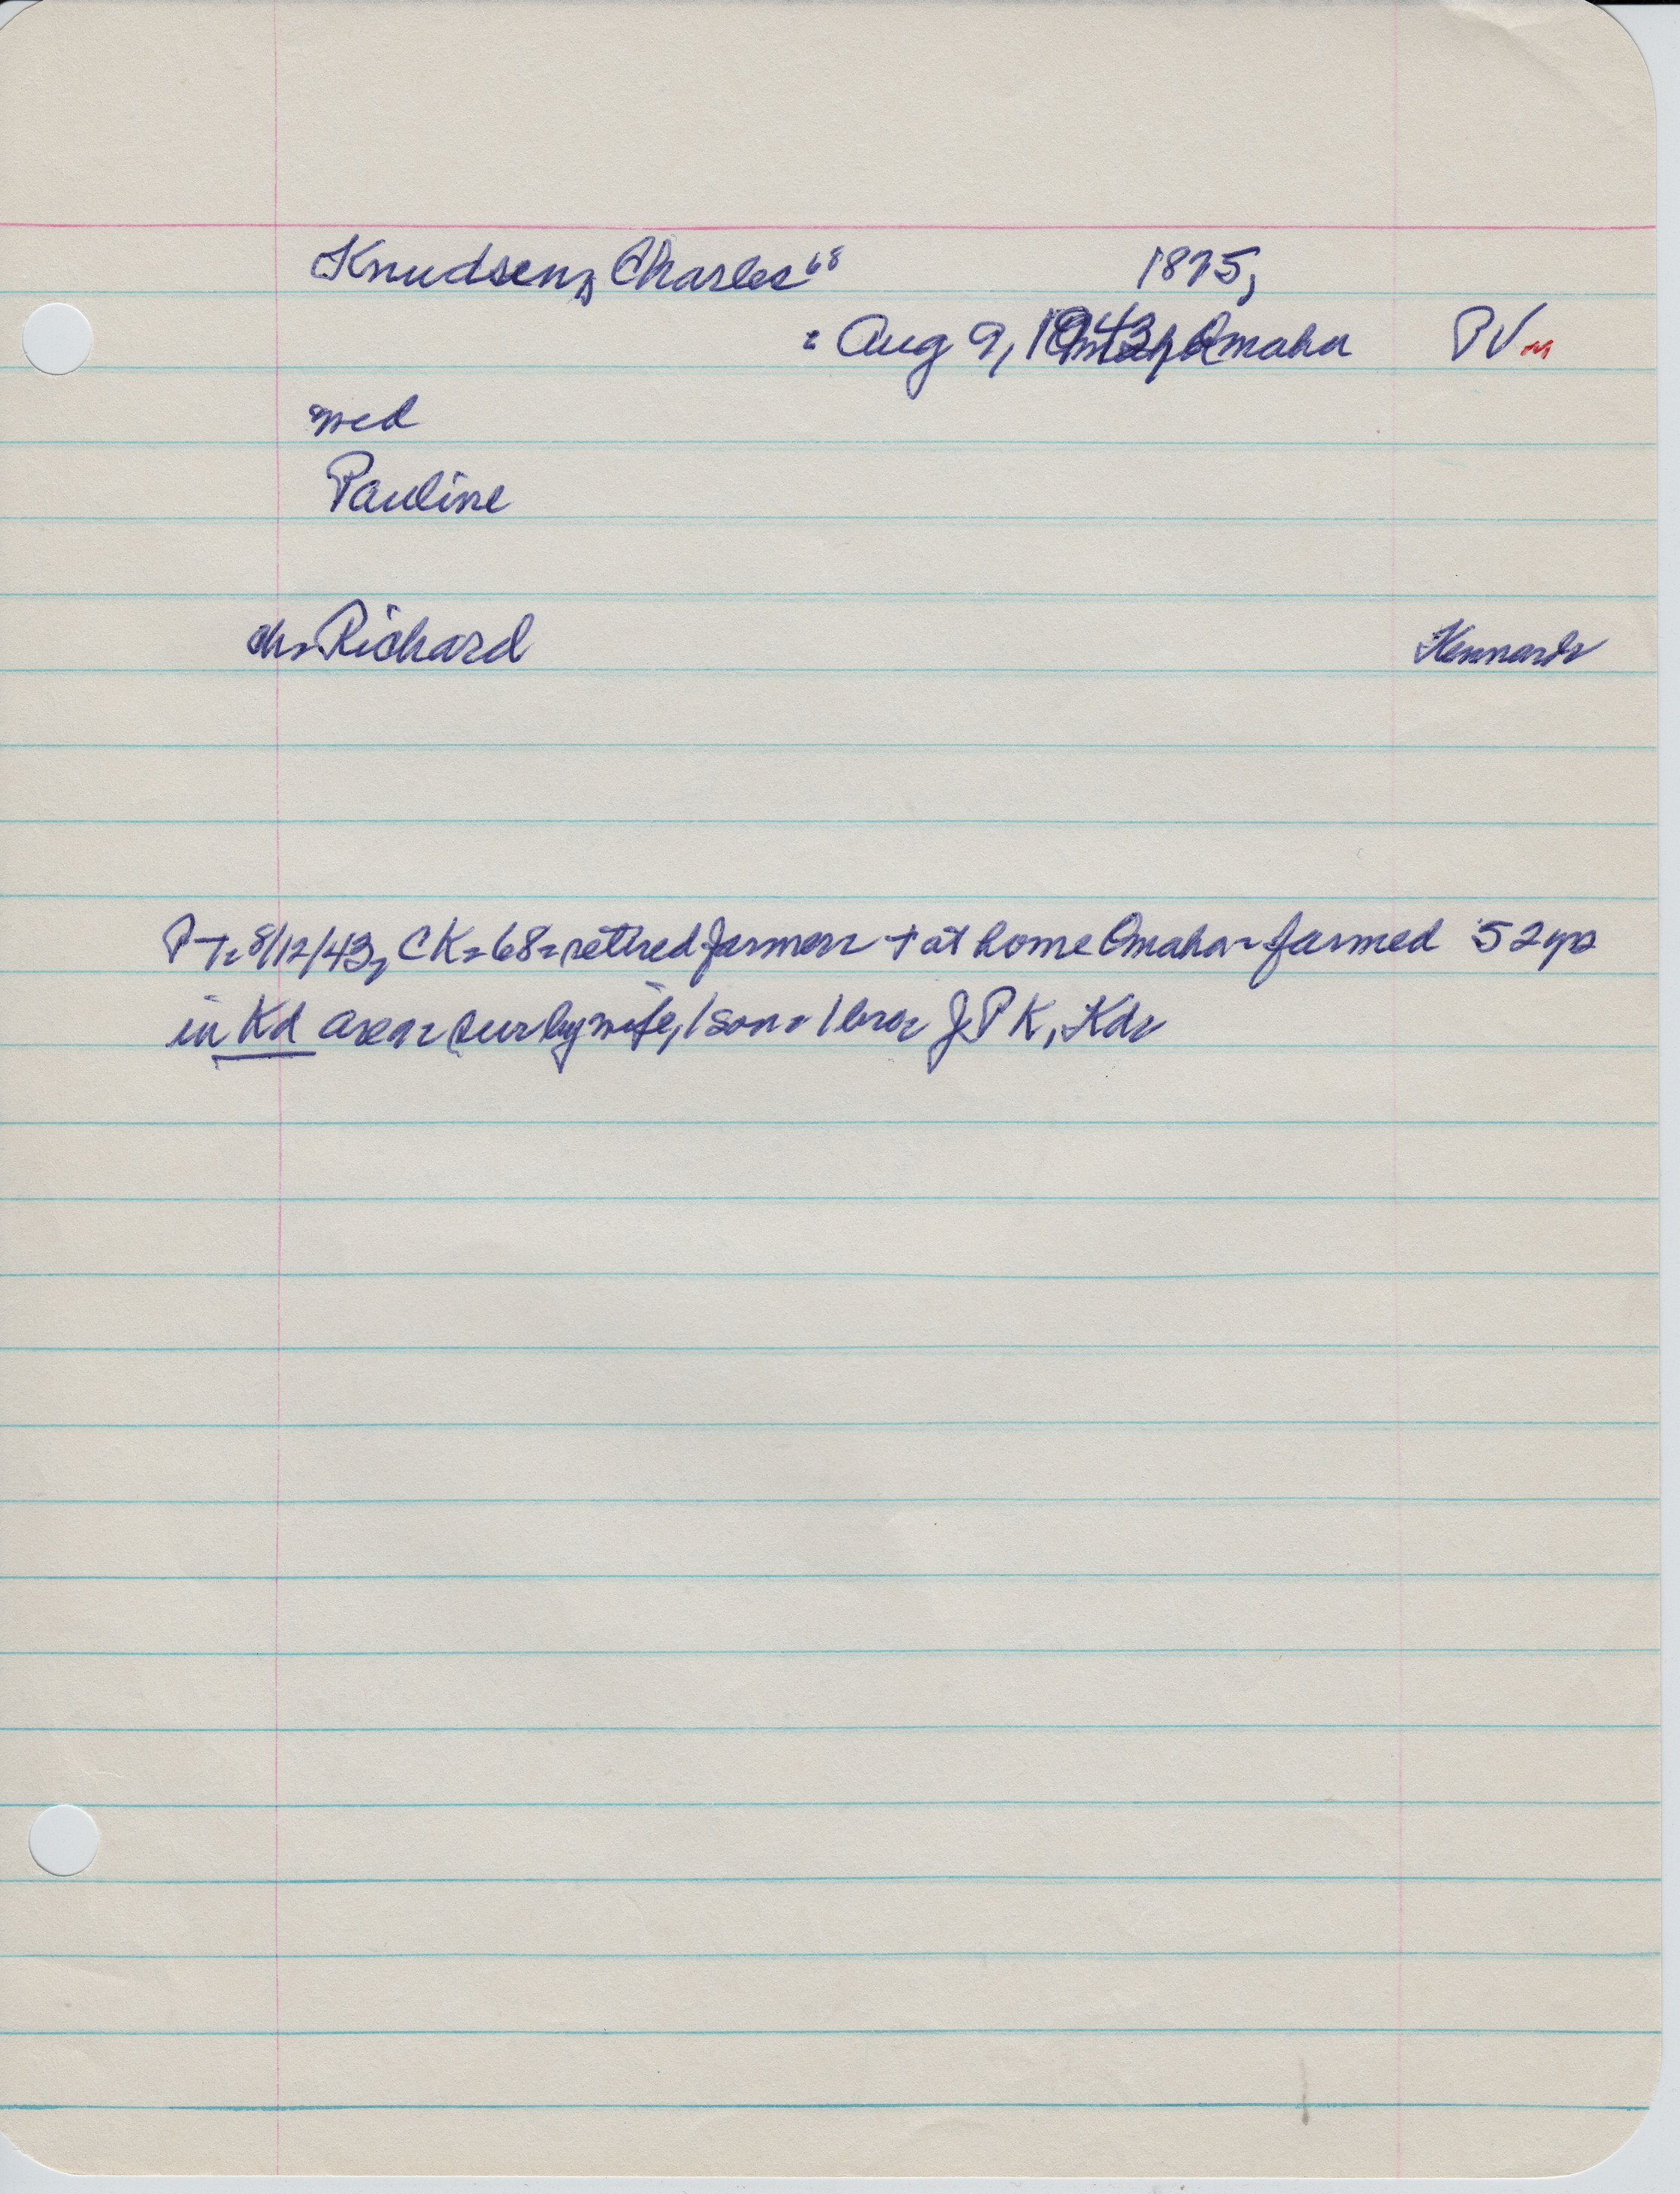 Knudsen, Charles 68 1875,
= Aug 9, 1943, Omaha PV m
med
Pauline
ch= Richard Kennard=
PT= 8/12/43, CK= 68= retired farmer= + at home Omaha= farmed 52 yrs
in Kd area= sur by wife, 1 son= 1 bro= J P K, Kd=